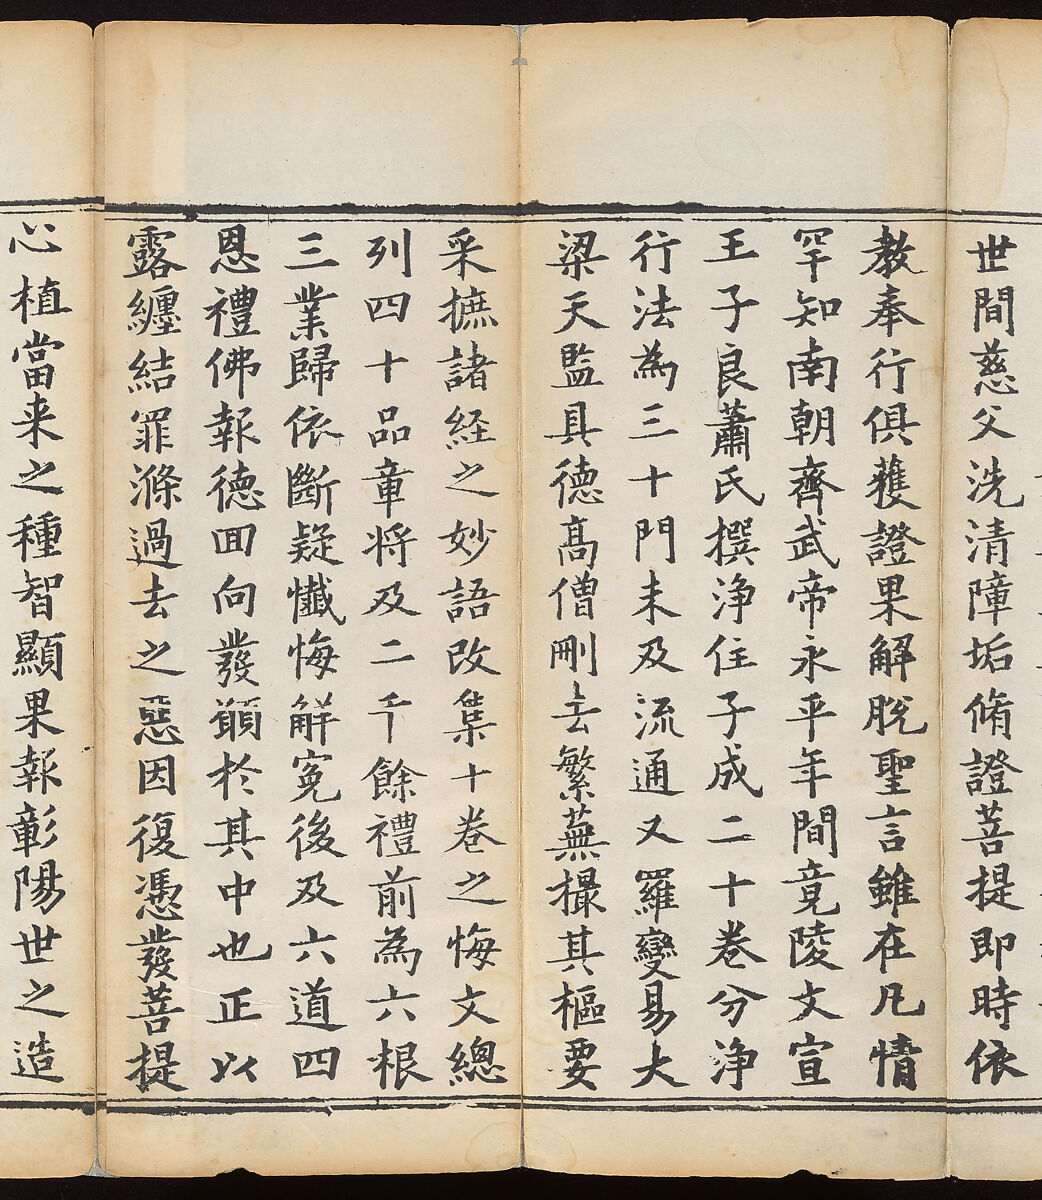 世間慈父洗清障垢脩證菩提即時依
教奉行俱獲證果解脫聖言雖在凡情
罕知南朝齊武帝永平年間竟陵文宣
王子良蕭氏撰淨住子成二十卷分淨
行法為三十門未及流通又羅變易大
梁天監具德高僧刪去繁蕪撮其樞要
采摭諸経之妙語改集十卷之悔文總
列四十品章将及二千餘禮前為六根
三業歸依斷疑懺悔解冤後及六道四
恩禮佛報德回向發願於其中也正以
露纏結罪滌過去之惡因復憑發菩提
心植當来之種智顯果報彰陽世之造